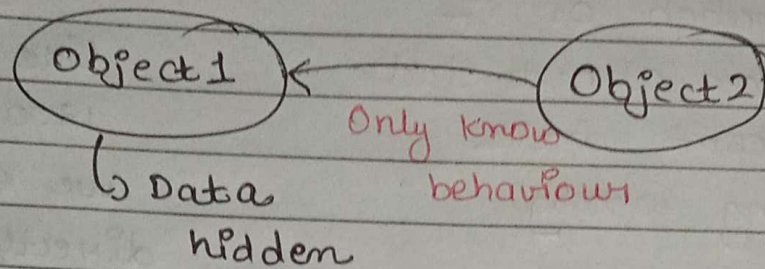 Object1
Object2
Only know
behaviour
Data
hidden